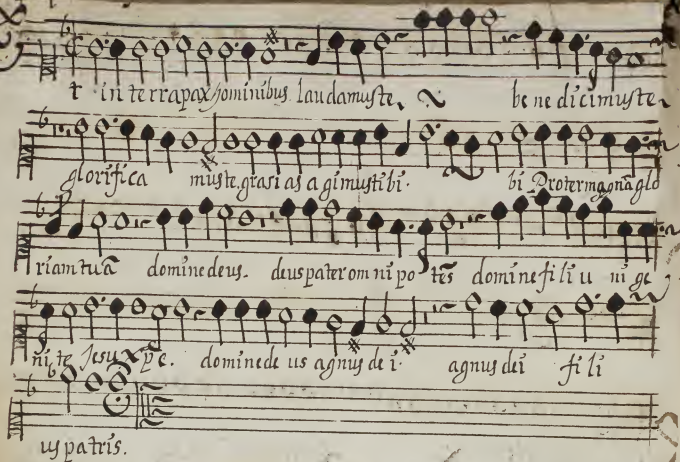 t in terra pax hominibus laudamuste. be ne dicimuste.
glorifica muste. grasi as a gimustibi. bi Proter magnā glo
riam tuā domine deus. deus pater om ni po tēs domine fi li u ni ge
ni te Jesu xp̄e. domine de us agnus de i. agnus dei fi li
us patris.